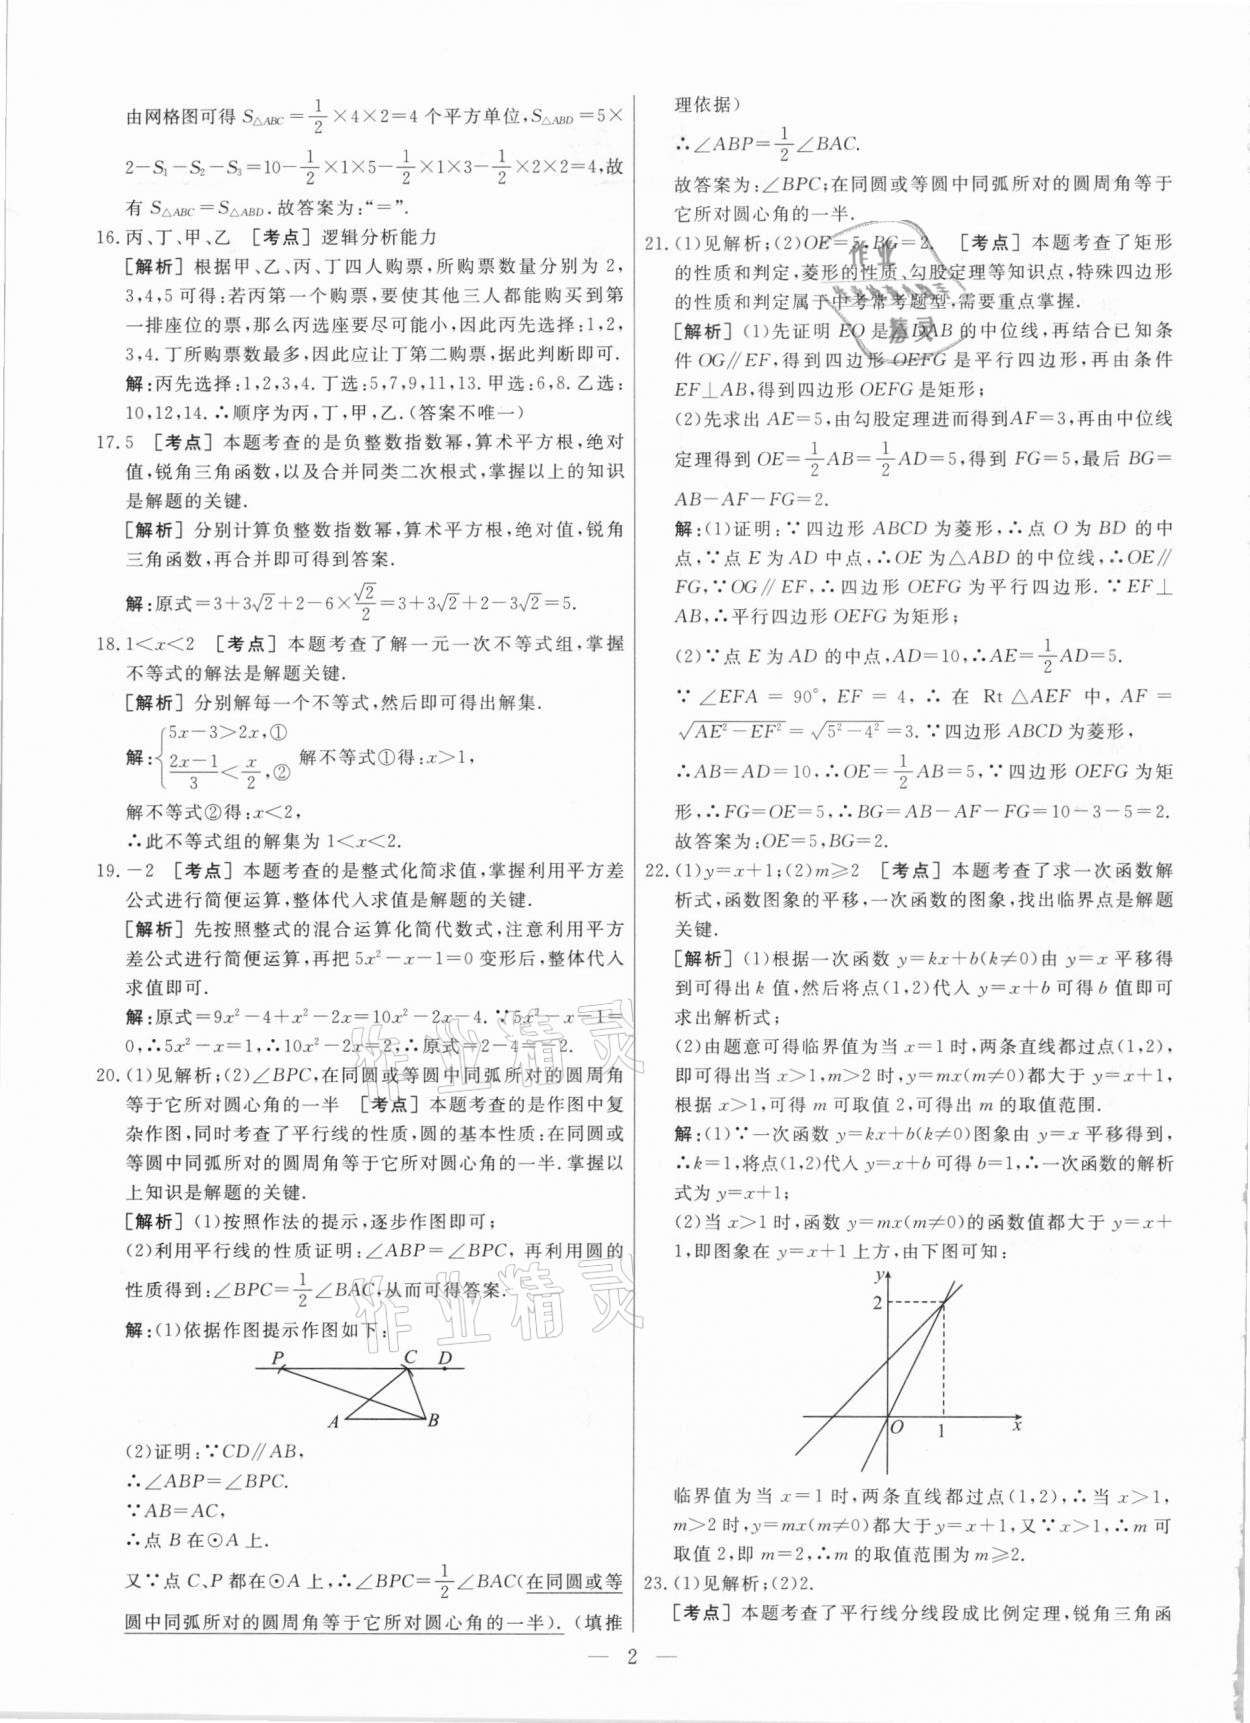 由网格图可得 S△ABC=1/2×4×2=4 个平方单位,S△ABD=5×
2-S₁-S₂-S₃=10-1/2×1×5-1/2×1×3-1/2×2×2=4,故
有 S△ABC=S△ABD.故答案为:“=”.
16.丙、丁、甲、乙 [考点] 逻辑分析能力
[解析] 根据甲、乙、丙、丁四人购票,所购票数量分别为 2,
3,4,5 可得:若丙第一个购票,要使其他三人都能购买到第
一排座位的票,那么丙选座要尽可能小,因此丙先选择:1,2,
3,4.丁所购票数最多,因此应让丁第二购票,据此判断即可.
解:丙先选择:1,2,3,4.丁选:5,7,9,11,13.甲选:6,8.乙选:
10,12,14.∴顺序为丙,丁,甲,乙.(答案不唯一)
17.5 [考点] 本题考查的是负整数指数幂,算术平方根,绝对
值,锐角三角函数,以及合并同类二次根式,掌握以上的知识
是解题的关键.
[解析] 分别计算负整数指数幂,算术平方根,绝对值,锐角
三角函数,再合并即可得到答案.
解:原式=3+3√2+2-6×√2/2=3+3√2+2-3√2=5.
18.1<x<2 [考点] 本题考查了解一元一次不等式组,掌握
不等式的解法是解题关键.
[解析] 分别解每一个不等式,然后即可得出解集.
解:{5x-3>2x,①
(2x-1)/3<x/2,② 解不等式①得:x>1,
解不等式②得:x<2,
∴此不等式组的解集为 1<x<2.
19.-2 [考点] 本题考查的是整式化简求值,掌握利用平方差
公式进行简便运算,整体代入求值是解题的关键.
[解析] 先按照整式的混合运算化简代数式,注意利用平方
差公式进行简便运算,再把 5x²-x-1=0 变形后,整体代入
求值即可.
解:原式=9x²-4+x²-2x=10x²-2x-4.∵5x²-x-1=
0,∴5x²-x=1,∴10x²-2x=2,∴原式=2-4=-2.
20.(1)见解析;(2)∠BPC,在同圆或等圆中同弧所对的圆周角
等于它所对圆心角的一半 [考点] 本题考查的是作图中复
杂作图,同时考查了平行线的性质,圆的基本性质:在同圆或
等圆中同弧所对的圆周角等于它所对圆心角的一半.掌握以
上知识是解题的关键.
[解析] (1)按照作法的提示,逐步作图即可;
(2)利用平行线的性质证明:∠ABP=∠BPC,再利用圆的
性质得到:∠BPC=1/2∠BAC,从而可得答案.
解:(1)依据作图提示作图如下:
P C D
A B
(2)证明:∵CD∥AB,
∴∠ABP=∠BPC.
∵AB=AC,
∴点 B 在⊙A 上.
又∵点 C、P 都在⊙A 上,∴∠BPC=1/2∠BAC(在同圆或等
圆中同弧所对的圆周角等于它所对圆心角的一半).(填推
理依据)
∴∠ABP=1/2∠BAC.
故答案为:∠BPC;在同圆或等圆中同弧所对的圆周角等于
它所对圆心角的一半.
21.(1)见解析;(2)OE=5,BG=2. [考点] 本题考查了矩形
的性质和判定,菱形的性质、勾股定理等知识点,特殊四边形
的性质和判定属于中考常考题型,需要重点掌握.
[解析] (1)先证明 EO 是△DAB 的中位线,再结合已知条
件 OG∥EF,得到四边形 OEFG 是平行四边形,再由条件
EF⊥AB,得到四边形 OEFG 是矩形;
(2)先求出 AE=5,由勾股定理进而得到AF=3,再由中位线
定理得到 OE=1/2AB=1/2AD=5,得到 FG=5,最后 BG=
AB-AF-FG=2.
解:(1)证明:∵四边形 ABCD 为菱形,∴点 O 为 BD 的中
点,∵点 E 为 AD 中点,∴OE 为△ABD 的中位线,∴OE∥
FG,∵OG∥EF,∴四边形 OEFG 为平行四边形.∵EF⊥
AB,∴平行四边形 OEFG 为矩形;
(2)∵点 E 为 AD 的中点,AD=10,∴AE=1/2AD=5.
∵ ∠EFA = 90°, EF = 4, ∴ 在 Rt △AEF 中, AF =
√(AE²-EF²)=√(5²-4²)=3.∵四边形 ABCD 为菱形,
∴AB=AD=10,∴OE=1/2AB=5,∵四边形 OEFG 为矩
形,∴FG=OE=5,∴BG=AB-AF-FG=10-3-5=2.
故答案为:OE=5,BG=2.
22.(1)y=x+1;(2)m≥2 [考点] 本题考查了求一次函数解
析式,函数图象的平移,一次函数的图象,找出临界点是解题
关键.
[解析] (1)根据一次函数 y=kx+b(k≠0)由 y=x 平移得
到可得出k 值,然后将点(1,2)代入 y=x+b 可得 b 值即可
求出解析式;
(2)由题意可得临界值为当 x=1 时,两条直线都过点(1,2),
即可得出当 x>1,m>2 时,y=mx(m≠0)都大于 y=x+1,
根据 x>1,可得 m 可取值 2,可得出 m 的取值范围.
解:(1)∵一次函数 y=kx+b(k≠0)图象由 y=x 平移得到,
∴k=1,将点(1,2)代入 y=x+b 可得 b=1,∴一次函数的解析
式为 y=x+1;
(2)当 x>1 时,函数 y=mx(m≠0)的函数值都大于 y=x+
1,即图象在 y=x+1 上方,由下图可知:
y
2
O 1 x
临界值为当 x=1 时,两条直线都过点(1,2),∴当 x>1,
m>2 时,y=mx(m≠0)都大于 y=x+1,又∵x>1,∴m 可
取值 2,即 m=2,∴m 的取值范围为 m≥2.
23.(1)见解析;(2)2.
[考点] 本题考查了平行线分线段成比例定理,锐角三角函
— 2 —
作业精灵
作业精灵